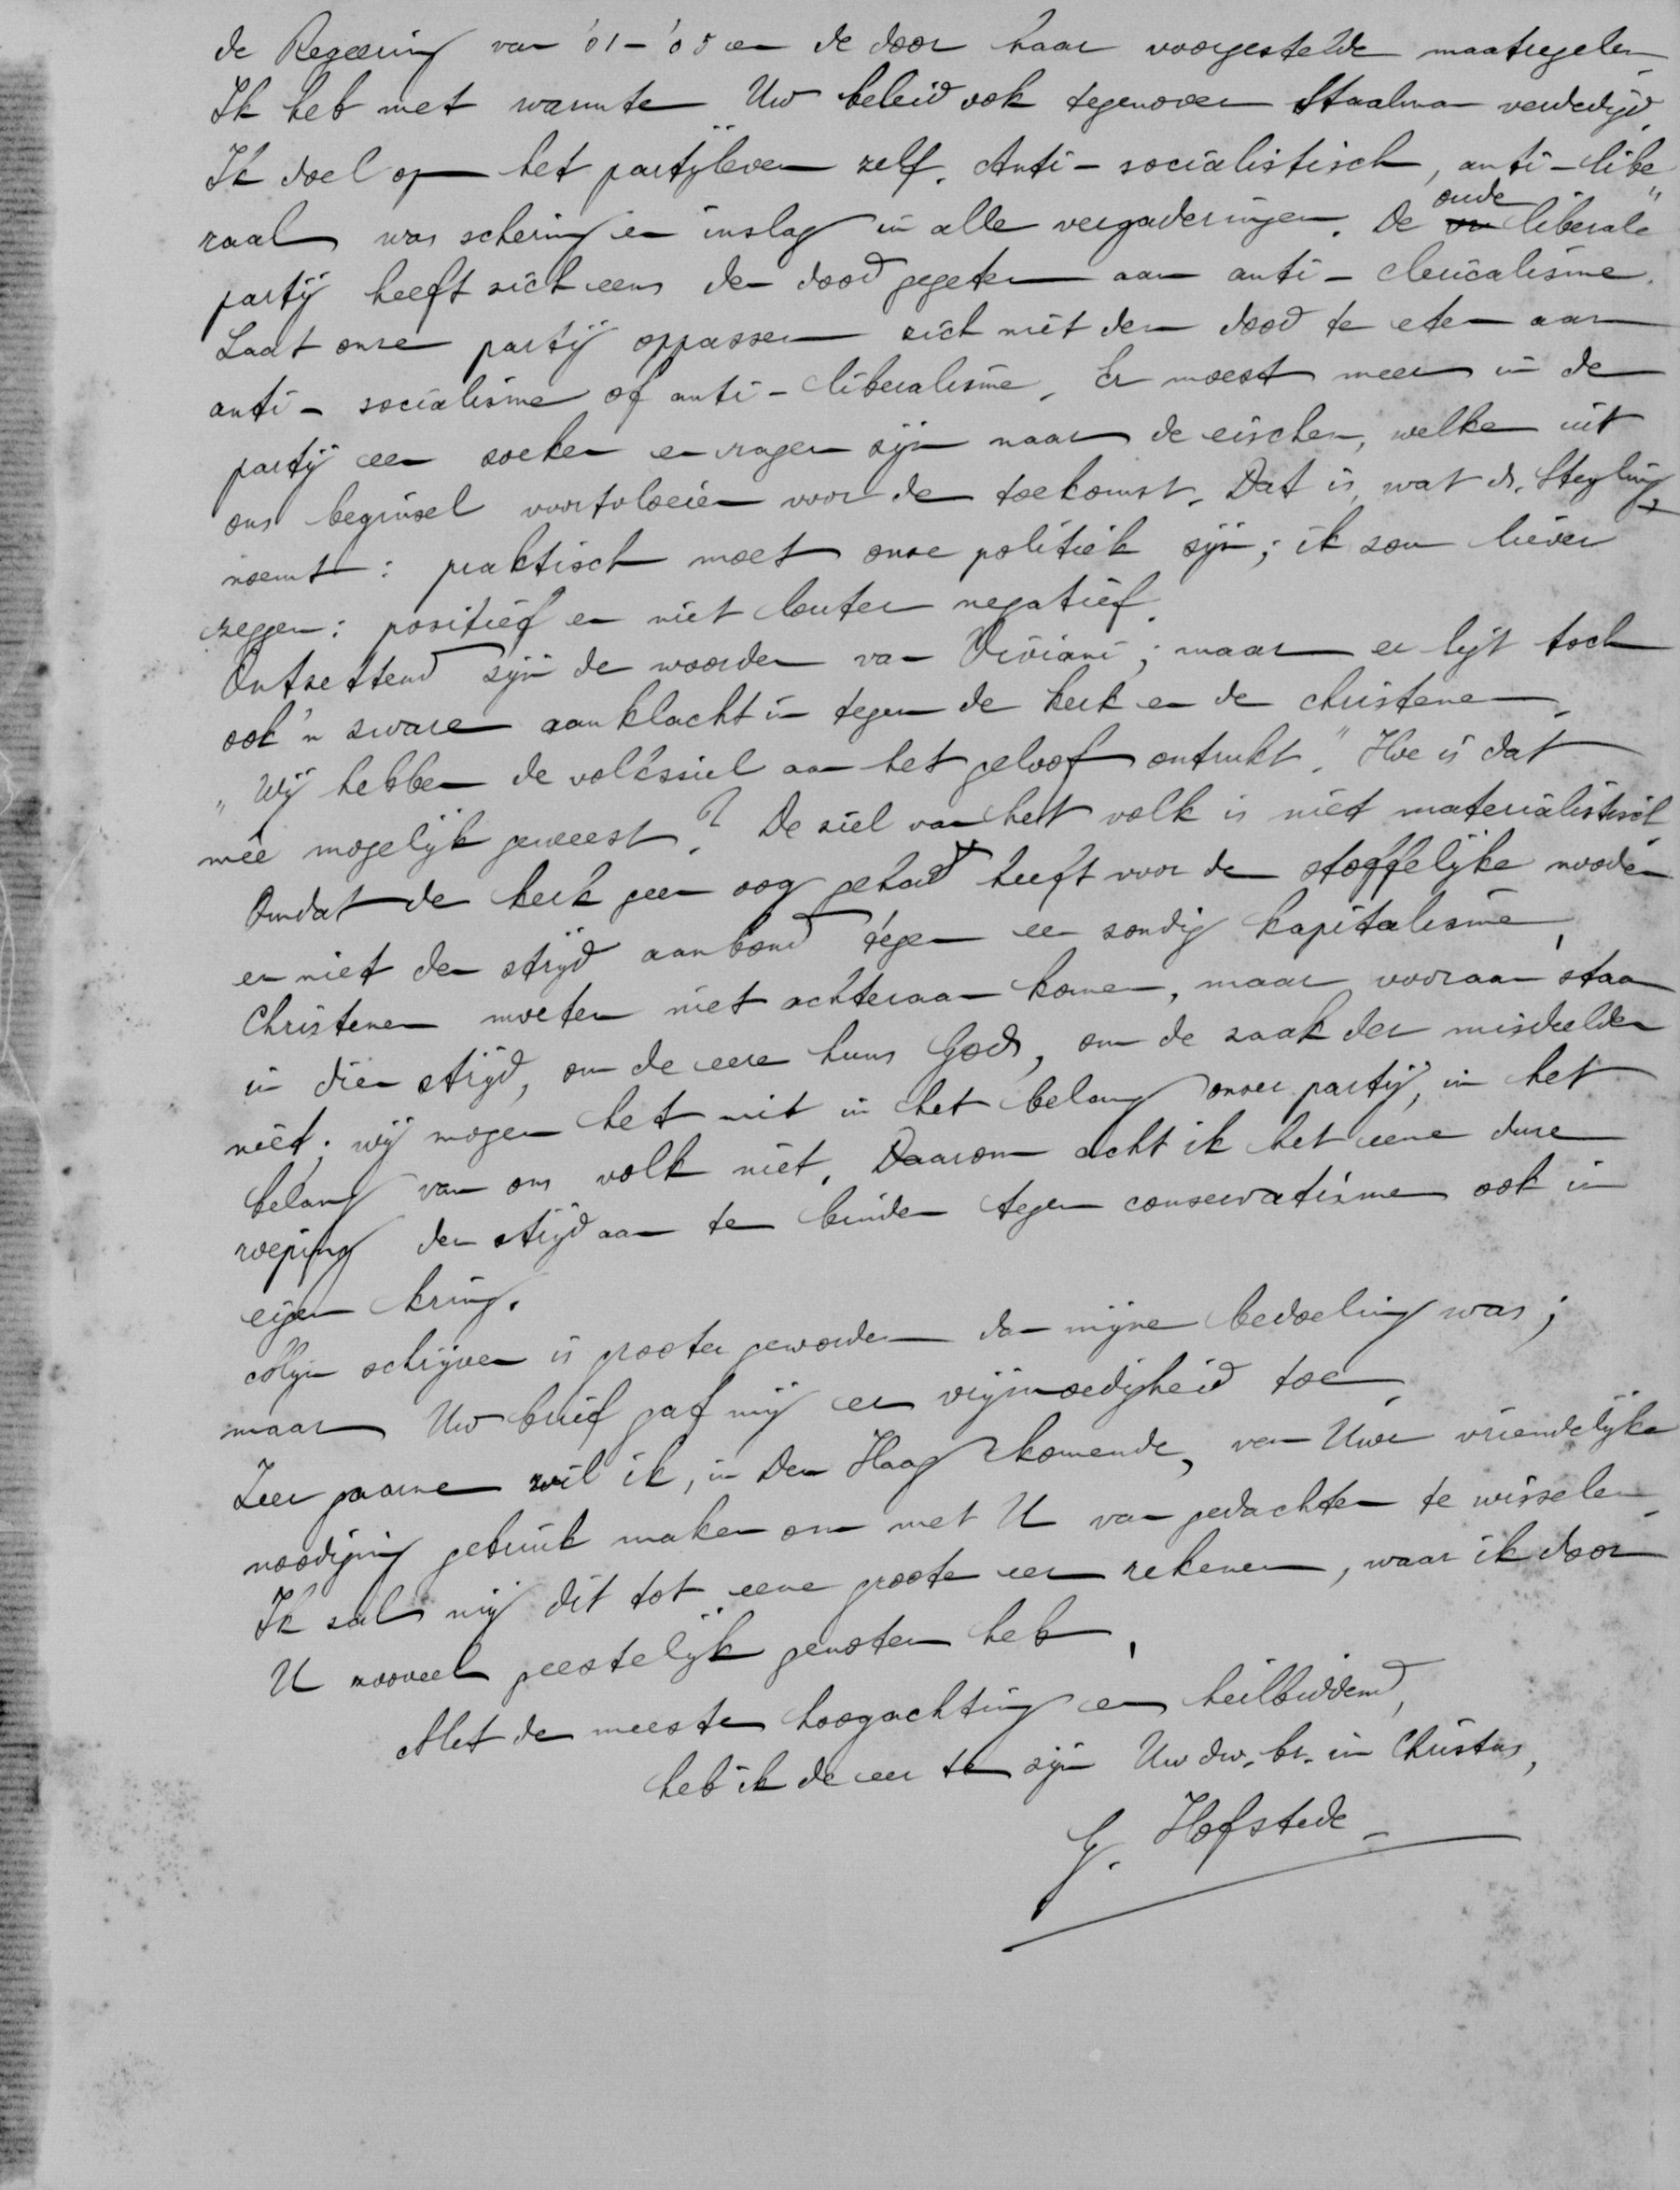 de Regeering van '01-'05 en de door haar voorgestelde maatregelen.
Ik heb met warmte Uw beleid ook tegenover Staalman verdedigd.
Ik doel op het partijleven zelf. Anti-socialistisch, anti-libe"
raal was schering en inslag in alle vergaderingen. De oude liberale
partij heeft zich eens den dood gegeten aan anti-clericalisme.
Laat onze partij oppassen zich niet den dood te eten aan
anti-socialisme of anti-liberalisme. Er moest meer in de
partij een zoeken en vragen zijn naar de eischen, welke uit
ons beginsel voortvloeien voor de toekomst. Dat is, wat ds. Steyling
noemt: praktisch moet onze politiek zijn; ik zou liever
zeggen: positief en niet louter negatief.
Ontzettend zijn de woorden van Viviani; maar er ligt toch
ook 'n zware aanklacht in tegen de kerk en de christenen.
"Wij hebben de volksziel aan het geloof ontrukt." Hoe is dat
mêe mogelijk geweest? De ziel van het volk is niet materialistisch.
Omdat de kerk geen oog gehad heeft voor de stoffelijke nooden
en niet den strijd aanbond tegen een zondig kapitalisme.
Christenen moeten niet achteraan komen, maar vooraan staan
in dien strijd, om de eere huns Gods, om de zaak der misdeelden
niet; wij mogen het niet in het belang onzer partij, in het
belang van ons volk niet. Daarom acht ik het eene dure
roeping den strijd aan te binden tegen conservatisme ook in
eigen kring.
Mijn schrijven is grooter geworden dan mijne bedoeling was;
maar Uw brief gaf mij er vrijmoedigheid toe.
Zeer gaarne wil ik, in Den Haag komende, van Uwe vriendelijke
noodiging gebruik maken om met U van gedachten te wisselen.
Ik zal mij dit tot eene groote eer rekenen, waar ik door
U zooveel geestelijk genoten heb.
Met de meeste hoogachting en heilbiddend,
heb ik de eer te zijn Uw dw. br. in Christus,
G. Hofstede